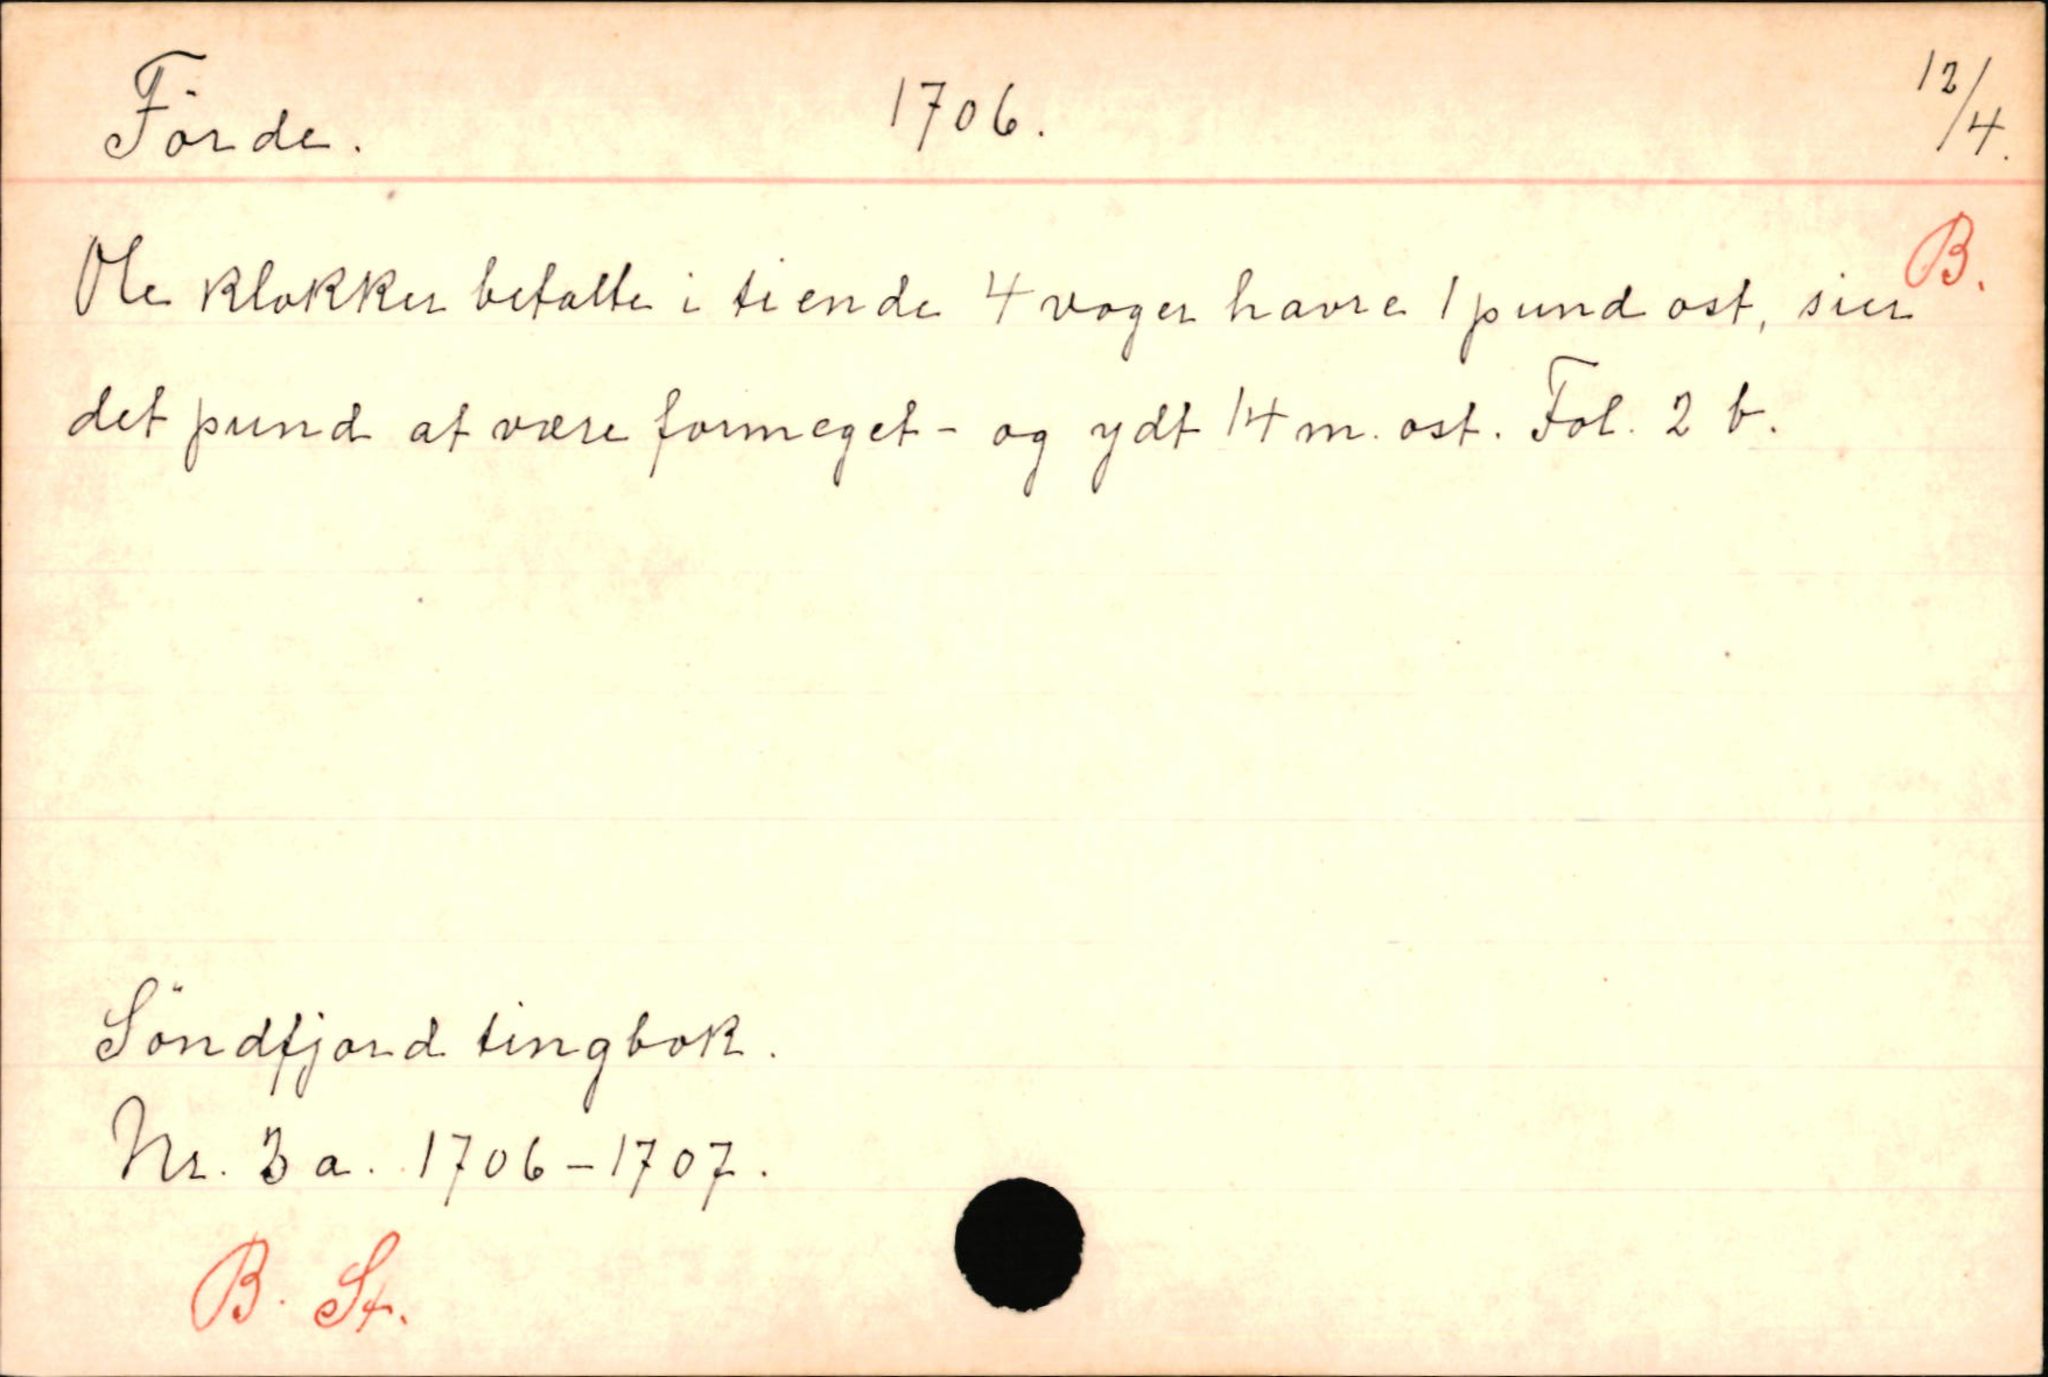 Förde. 1706. 12/4.
B.
Ole klokker betalte i tiende 4 voger havre 1 pund ost, sier
det pund at være formeget - og ydt 14 m. ost. Fol. 2 b.
Söndfjord tingbok.
Nr. 3 a. 1706-1707.
B. St.